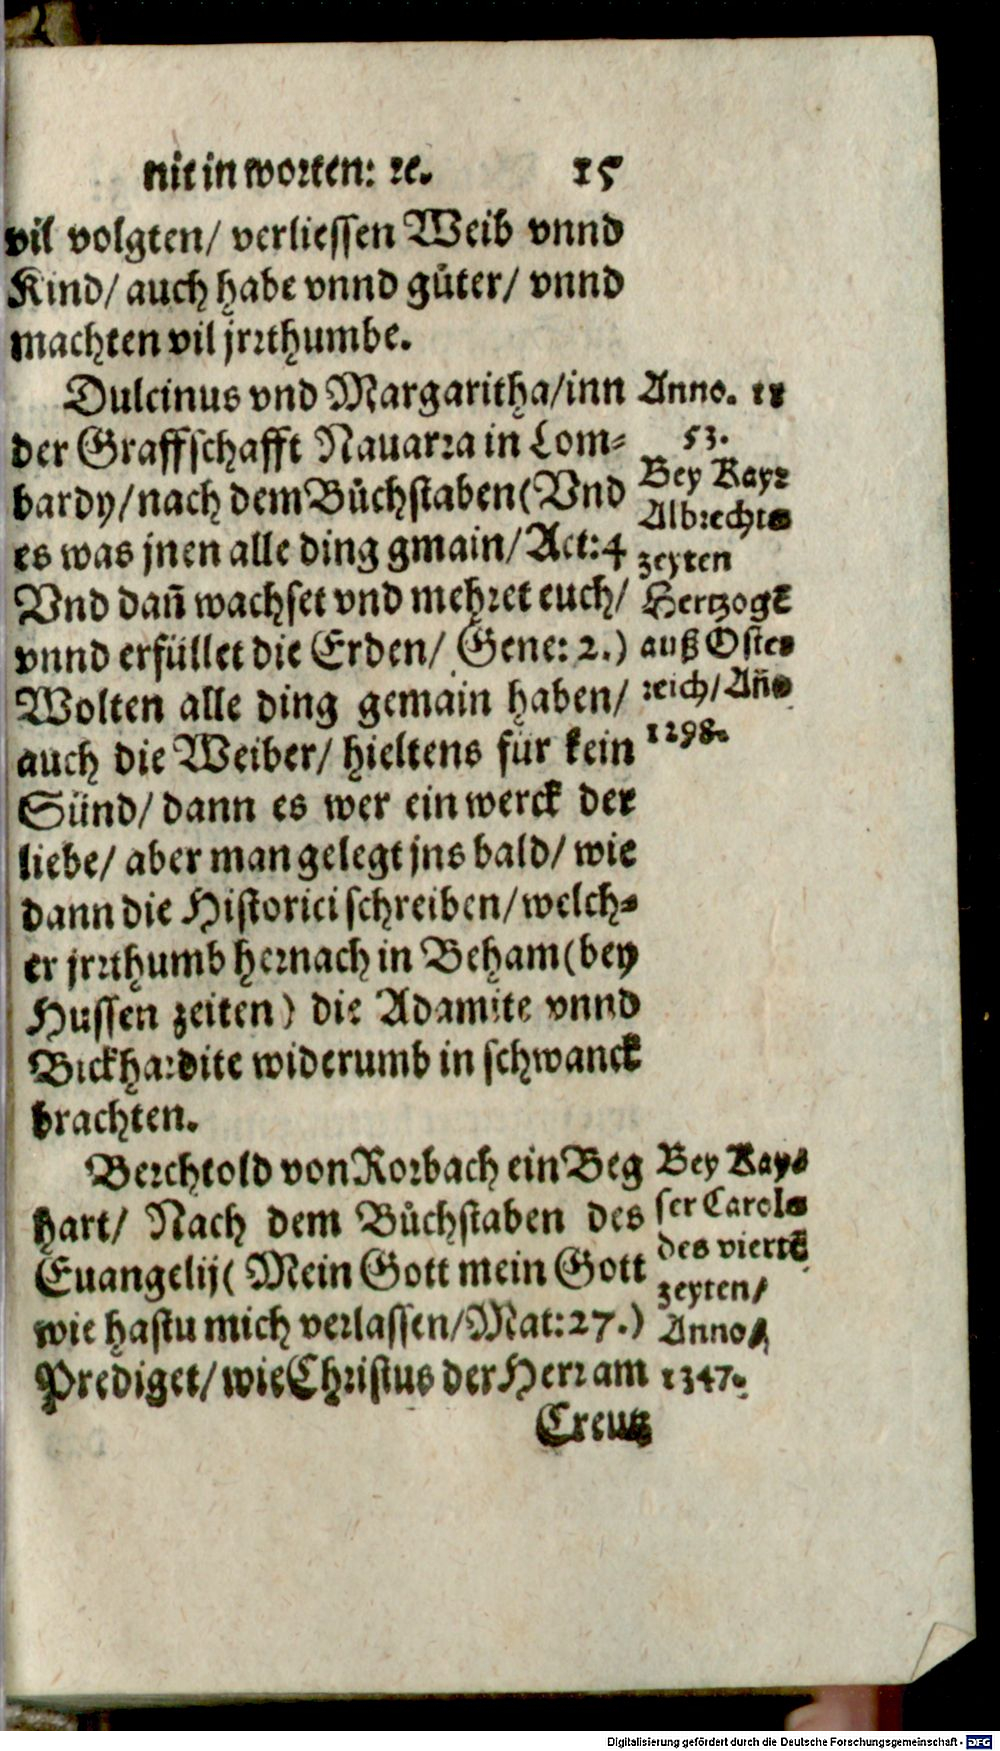 nit in worten: ꝛc. 15
vil volgten/ verliessen Weib vnnd
Kind/ auch habe vnnd gůter/ vnnd
machten vil jrrthumbe.
Dulcinus vnd Margaritha/inn
der Graffschafft Nauarra in Lom⸗
bardy/nach dem Bůchstaben(Vnd
es was jnen alle ding gmain/Act:4
Vnd dañ wachset vnd mehret euch/
vnnd erfüllet die Erden/ Gene: 2.)
Wolten alle ding gemain haben/
auch die Weiber/ hieltens für kein
Sünd/ dann es wer ein werck der
liebe/ aber man gelegt jns bald/ wie
dann die Historici schreiben/welch⸗
er jrrthumb hernach in Beham(bey
Hussen zeiten) die Adamite vnnd
Bickhardite widerumb in schwanck
brachten.
Anno. 12
53.
Bey Kayr
Albrechts
zeyten
Hertzogẽ
auß Oste⸗
reich/Año
1298.
Berchtold von Rorbach ein Beg
hart/ Nach dem Bůchstaben des
Euangelij( Mein Gott mein Gott
wie hastu mich verlassen/Mat:27.)
Prediget/wie Christus der Herr am
Creutz
Bey Kay⸗
ser Carols
des viertẽ
zeyten/
Anno
1347.
Digitalisierung gefördert durch die Deutsche Forschungsgemeinschaft - DFG